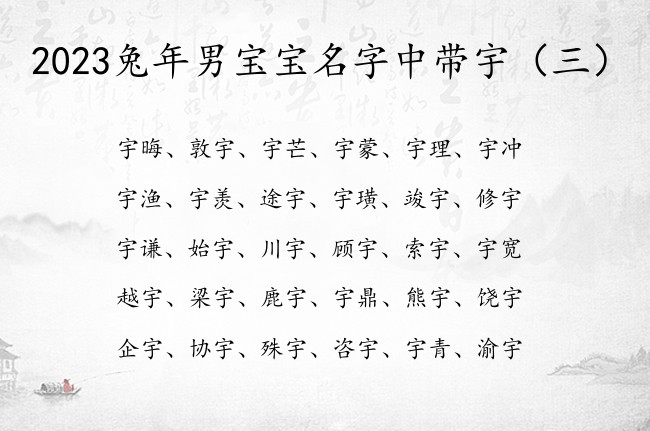 2023兔年男宝宝名字中带宇（三）
宇晦、敦宇、宇芒、宇蒙、宇理、宇冲
宇渔、宇羡、途宇、宇璜、竣宇、修宇
宇谦、始宇、川宇、顾宇、索宇、宇宽
越宇、梁宇、鹿宇、宇鼎、熊宇、饶宇
企宇、协宇、殊宇、咨宇、宇青、渝宇